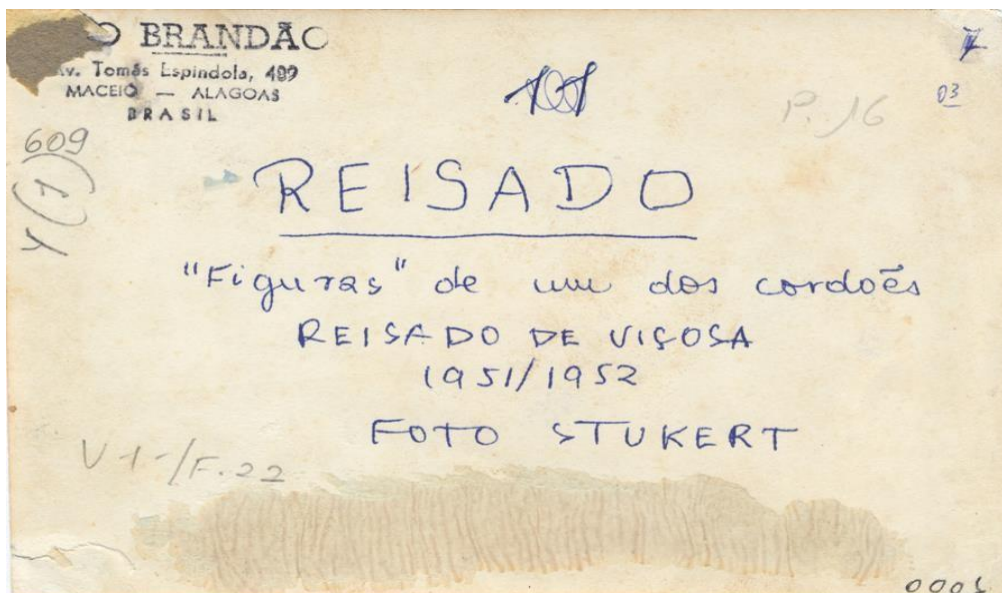 O BRANDÃO
Av. Tomás Espindola, 499
MACEIÓ — ALAGOAS
BRASIL
P. 16
03
609
Y(1)
REISADO
"Figuras" de um dos cordões
REISADO DE VIÇOSA
1951/1952
FOTO STUKERT
V-1-/F.22